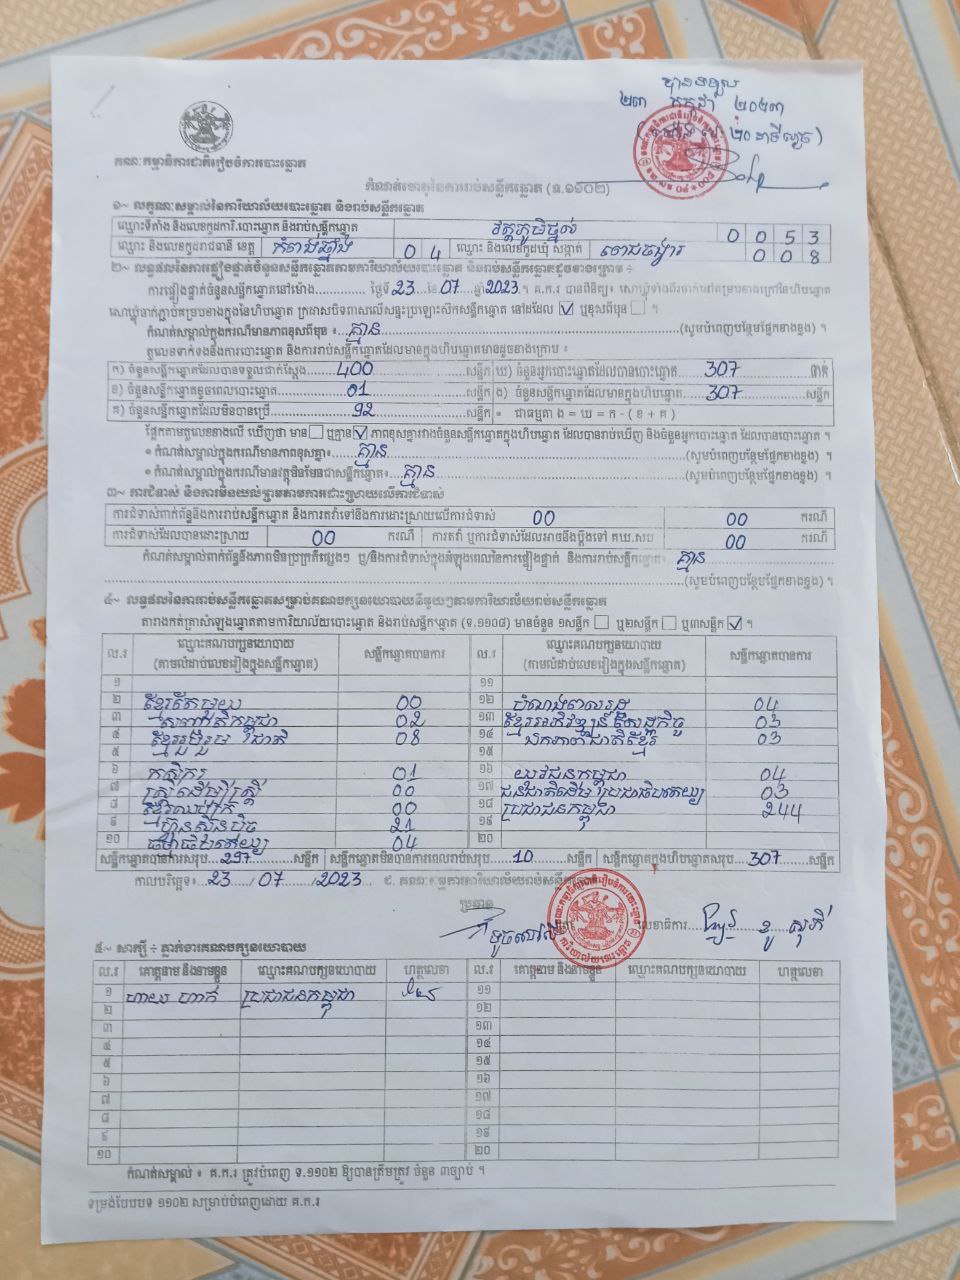 បានទទួល
២៣ កក្កដា ២០២៣
គណៈកម្មាធិការជាតិរៀបចំការបោះឆ្នោត
កំណត់ហេតុនៃការរាប់សន្លឹកឆ្នោត (ទ.១១០២)
១~ លក្ខណៈសម្គាល់នៃការិយាល័យបោះឆ្នោត និងរាប់សន្លឹកឆ្នោត
ឈ្មោះទីតាំង និងលេខកូដការិ.បោះឆ្នោត និងរាប់សន្លឹកឆ្នោត វត្តភូមិថ្នល់ 0 0 5 3
ឈ្មោះ និងលេខកូដរាជធានី ខេត្ត កំពង់ឆ្នាំង 0 4 ឈ្មោះ និងលេខកូដឃុំ សង្កាត់ 0 0 8
២~ លទ្ធផលនៃការផ្ទៀងផ្ទាត់ចំនួនសន្លឹកឆ្នោតតាមការិយាល័យបោះឆ្នោត និងរាប់សន្លឹកឆ្នោតដូចខាងក្រោម ÷
ការផ្ទៀងផ្ទាត់ចំនួនសន្លឹកឆ្នោតនៅម៉ោង.............. ថ្ងៃទី 23 ខែ 07 ឆ្នាំ 2023 ។ គ.ក.រ បានពិនិត្យ៖ សោឃ្លុំទាំងពីរចាក់នៅគម្របខាងក្រៅនៃហិបឆ្នោត
សោឃ្លុំចាក់ភ្ជាប់គម្របខាងក្នុងនៃហិបឆ្នោត ក្រដាសបិទពាសលើសន្ទះប្រឡោះសឹកសន្លឹកឆ្នោត នៅដដែល ☑ ឬខុសពីមុន ☐ ។
កំណត់សម្គាល់ក្នុងករណីមានភាពខុសពីមុន ៖ គ្មាន (សូមបំពេញបន្ថែមផ្នែកខាងខ្នង) ។
តួលេខទាក់ទងនឹងការបោះឆ្នោត និងការរាប់សន្លឹកឆ្នោតដែលមានក្នុងហិបឆ្នោតមានដូចខាងក្រោម ៖
ក) ចំនួនសន្លឹកឆ្នោតដែលបានទទួលជាក់ស្តែង 400 សន្លឹក ឃ) ចំនួនអ្នកបោះឆ្នោតដែលបានបោះឆ្នោត 307 នាក់
ខ) ចំនួនសន្លឹកឆ្នោតខូចពេលបោះឆ្នោត 01 សន្លឹក ង) ចំនួនសន្លឹកឆ្នោតដែលមានក្នុងហិបឆ្នោត 307 សន្លឹក
គ) ចំនួនសន្លឹកឆ្នោតដែលមិនបានប្រើ 92 សន្លឹក • ជាធម្មតា ង = ឃ = ក - ( ខ + គ )
ផ្អែកតាមតួលេខខាងលើ ឃើញថា មាន ☐ ឬគ្មាន ☑ ភាពខុសគ្នារវាងចំនួនសន្លឹកឆ្នោតក្នុងហិបឆ្នោត ដែលបានរាប់ឃើញ និងចំនួនអ្នកបោះឆ្នោត ដែលបានបោះឆ្នោត ។
• កំណត់សម្គាល់ក្នុងករណីមានភាពខុសគ្នា៖ គ្មាន (សូមបំពេញបន្ថែមផ្នែកខាងខ្នង) ។
• កំណត់សម្គាល់ក្នុងករណីមានវត្ថុមិនមែនជាសន្លឹកឆ្នោត៖ គ្មាន (សូមបំពេញបន្ថែមផ្នែកខាងខ្នង) ។
៣~ ការជំទាស់ និងការមិនយល់ព្រមតាមការដោះស្រាយលើការជំទាស់
ការជំទាស់ពាក់ព័ន្ធនឹងការរាប់សន្លឹកឆ្នោត និងការតវ៉ាទៅនឹងការដោះស្រាយលើការជំទាស់ 00 00 ករណី
ការជំទាស់ដែលបានដោះស្រាយ 00 ករណី ការតវ៉ា ឬការជំទាស់ដែលអាចនឹងប្តឹងទៅ គឃ.សប 00 ករណី
កំណត់សម្គាល់ពាក់ព័ន្ធនឹងភាពមិនប្រក្រតីផ្សេងៗ ឬ/និងការជំទាស់ក្នុងអំឡុងពេលនៃការផ្ទៀងផ្ទាត់ និងការរាប់សន្លឹកឆ្នោត៖ គ្មាន
(សូមបំពេញបន្ថែមផ្នែកខាងខ្នង) ។
៤~ លទ្ធផលនៃការរាប់សន្លឹកឆ្នោតសម្រាប់គណបក្សនយោបាយនីមួយៗតាមការិយាល័យរាប់សន្លឹកឆ្នោត
តារាងកត់ត្រាសំឡេងឆ្នោតតាមការិយាល័យបោះឆ្នោត និងរាប់សន្លឹកឆ្នោត (ទ.១១០៨) មានចំនួន ១សន្លឹក ☐ ឬ២សន្លឹក ☐ ឬ៣សន្លឹក ☑ ។
ល.រ ឈ្មោះគណបក្សនយោបាយ (តាមលំដាប់លេខរៀងក្នុងសន្លឹកឆ្នោត) សន្លឹកឆ្នោតបានការ ល.រ ឈ្មោះគណបក្សនយោបាយ (តាមលំដាប់លេខរៀងក្នុងសន្លឹកឆ្នោត) សន្លឹកឆ្នោតបានការ
១ ១១
២ ខ្មែរតែមួយ 00 ១២ 04
៣ 02 ១៣ ខ្មែរអភិវឌ្ឍន៍សេដ្ឋកិច្ច 03
៤ ខ្មែររួបរួមជាតិ 08 ១៤ ឯកភាពជាតិខ្មែរ 03
៥ ១៥
៦ កសិករ 01 ១៦ យុវជនកម្ពុជា 04
៧ ស្ត្រីដើម្បីស្ត្រី 00 ១៧ ជនជាតិដើមប្រជាធិបតេយ្យ 03
៨ 00 ១៨ ប្រជាជនកម្ពុជា 244
៩ ហ្វ៊ុនស៊ិនប៉ិច 21 ១៩
១០ ធម្មាធិបតេយ្យ 04 ២០
សន្លឹកឆ្នោតបានការសរុប 297 សន្លឹក សន្លឹកឆ្នោតមិនបានការពេលរាប់សរុប 10 សន្លឹក សន្លឹកឆ្នោតក្នុងហិបឆ្នោតសរុប 307 សន្លឹក
កាលបរិច្ឆេទ៖ 23 / 07 / 2023 ជ. គណៈកម្មការការិយាល័យរាប់សន្លឹកឆ្នោត
ប្រធាន
លេខាធិការ
៥~ សាក្សី ÷ ភ្នាក់ងារគណបក្សនយោបាយ
ល.រ គោត្តនាម និងនាមខ្លួន ឈ្មោះគណបក្សនយោបាយ ហត្ថលេខា ល.រ គោត្តនាម និងនាមខ្លួន ឈ្មោះគណបក្សនយោបាយ ហត្ថលេខា
១ ប្រជាជនកម្ពុជា ១១
២ ១២
៣ ១៣
៤ ១៤
៥ ១៥
៦ ១៦
៧ ១៧
៨ ១៨
៩ ១៩
១០ ២០
កំណត់សម្គាល់ ៖ គ.ក.រ ត្រូវបំពេញ ទ.១១០២ ឱ្យបានត្រឹមត្រូវ ចំនួន ៣ច្បាប់ ។
ទម្រង់បែបបទ ១១០២ សម្រាប់បំពេញដោយ គ.ក.រ